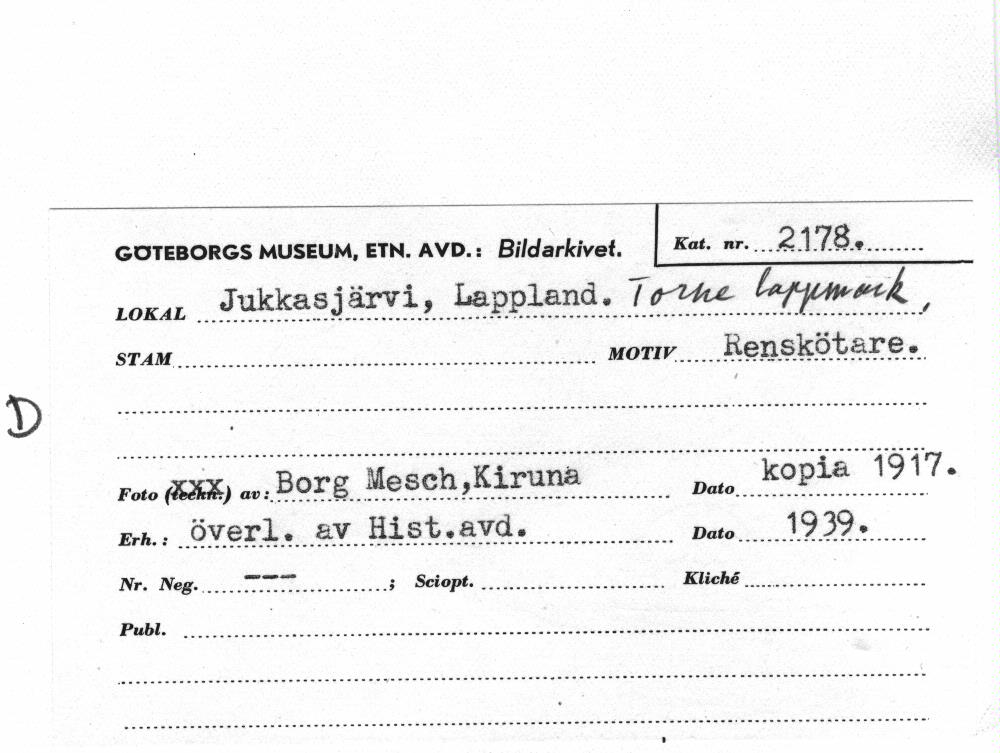 GÖTEBORGS MUSEUM, ETN. AVD.: Bildarkivet.
Kat. nr. 2178.
LOKAL Jukkasjärvi, Lappland. Torne lappmark,
STAM MOTIV Renskötare.
D
Foto (teckn.) av: Borg Mesch,Kiruna Dato kopia 1917.
Erh.: överl. av Hist.avd. Dato 1939.
Nr. Neg. --- ; Sciopt. Kliché
Publ.